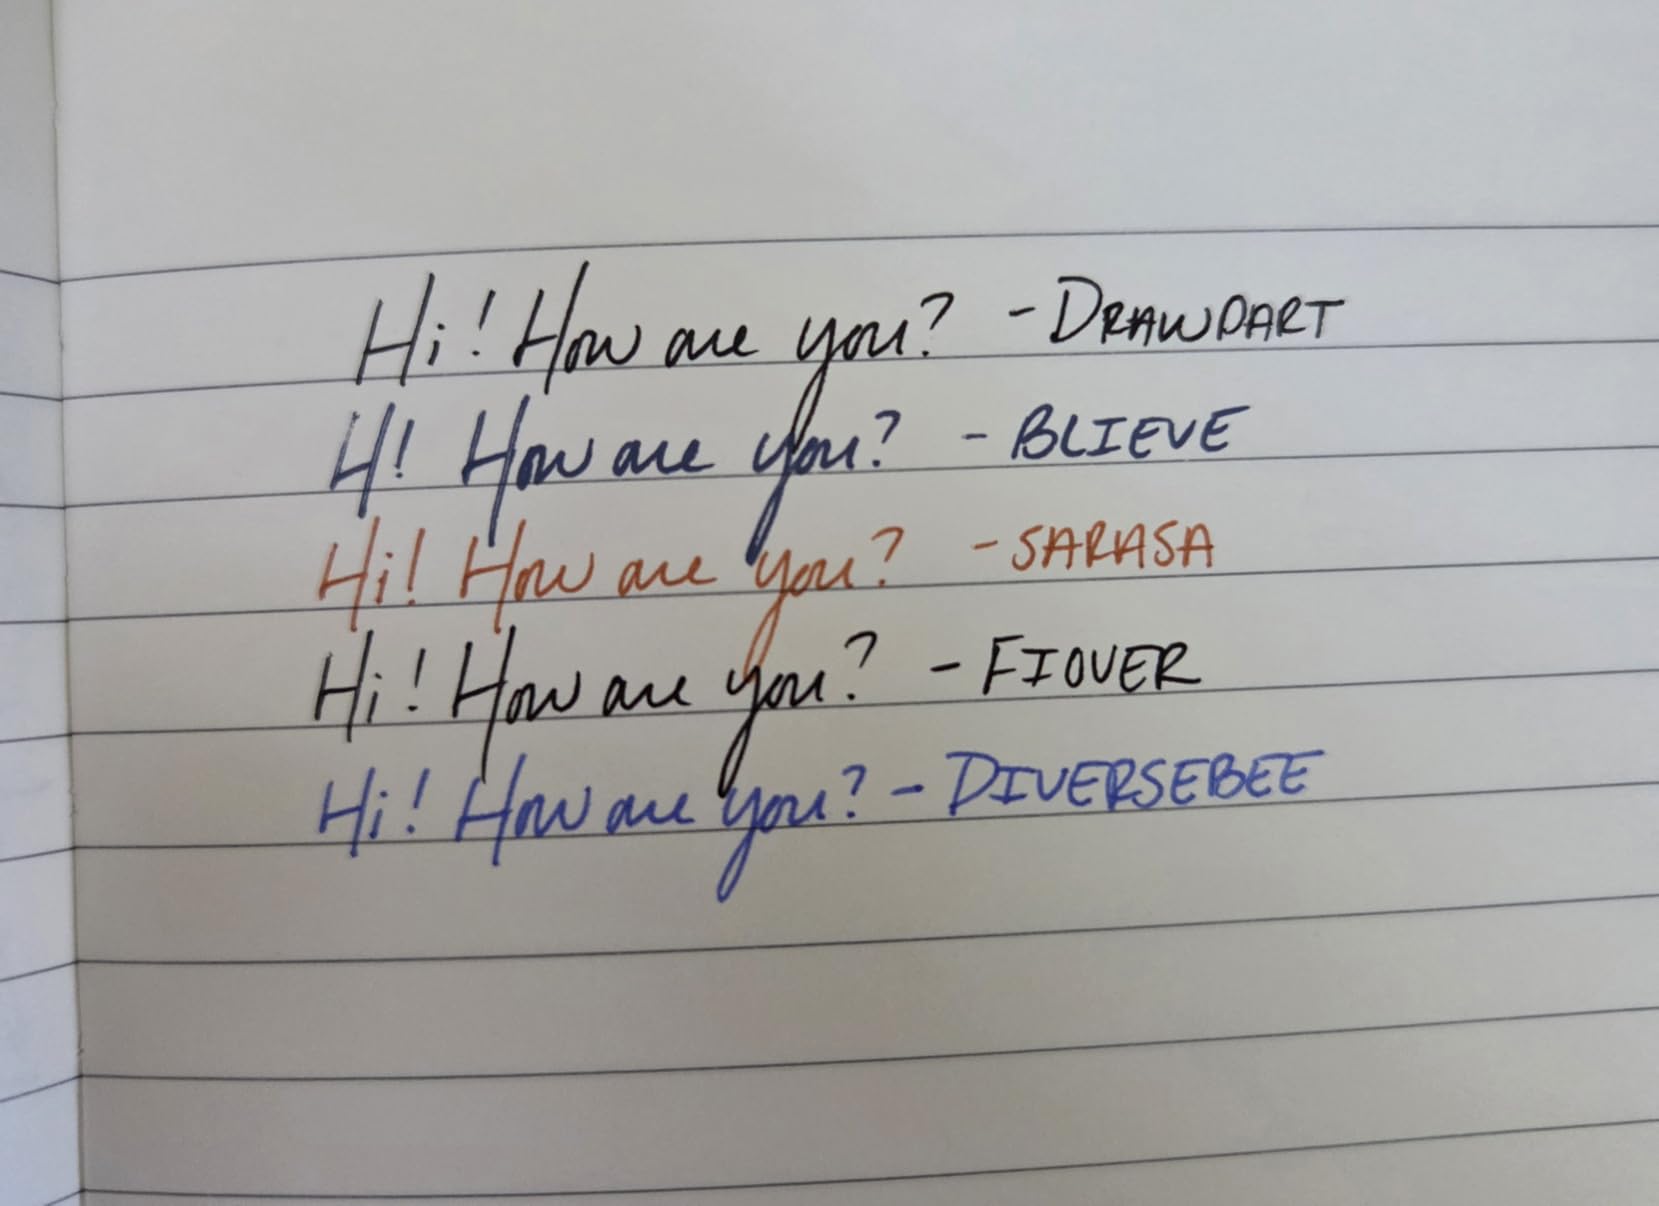 Hi! How are you? - DRAWDART
Hi! How are you? - BLIEVE
Hi! How are you? - SARASA
Hi! How are you? - FIOVER
Hi! How are you? - DIVERSEBEE